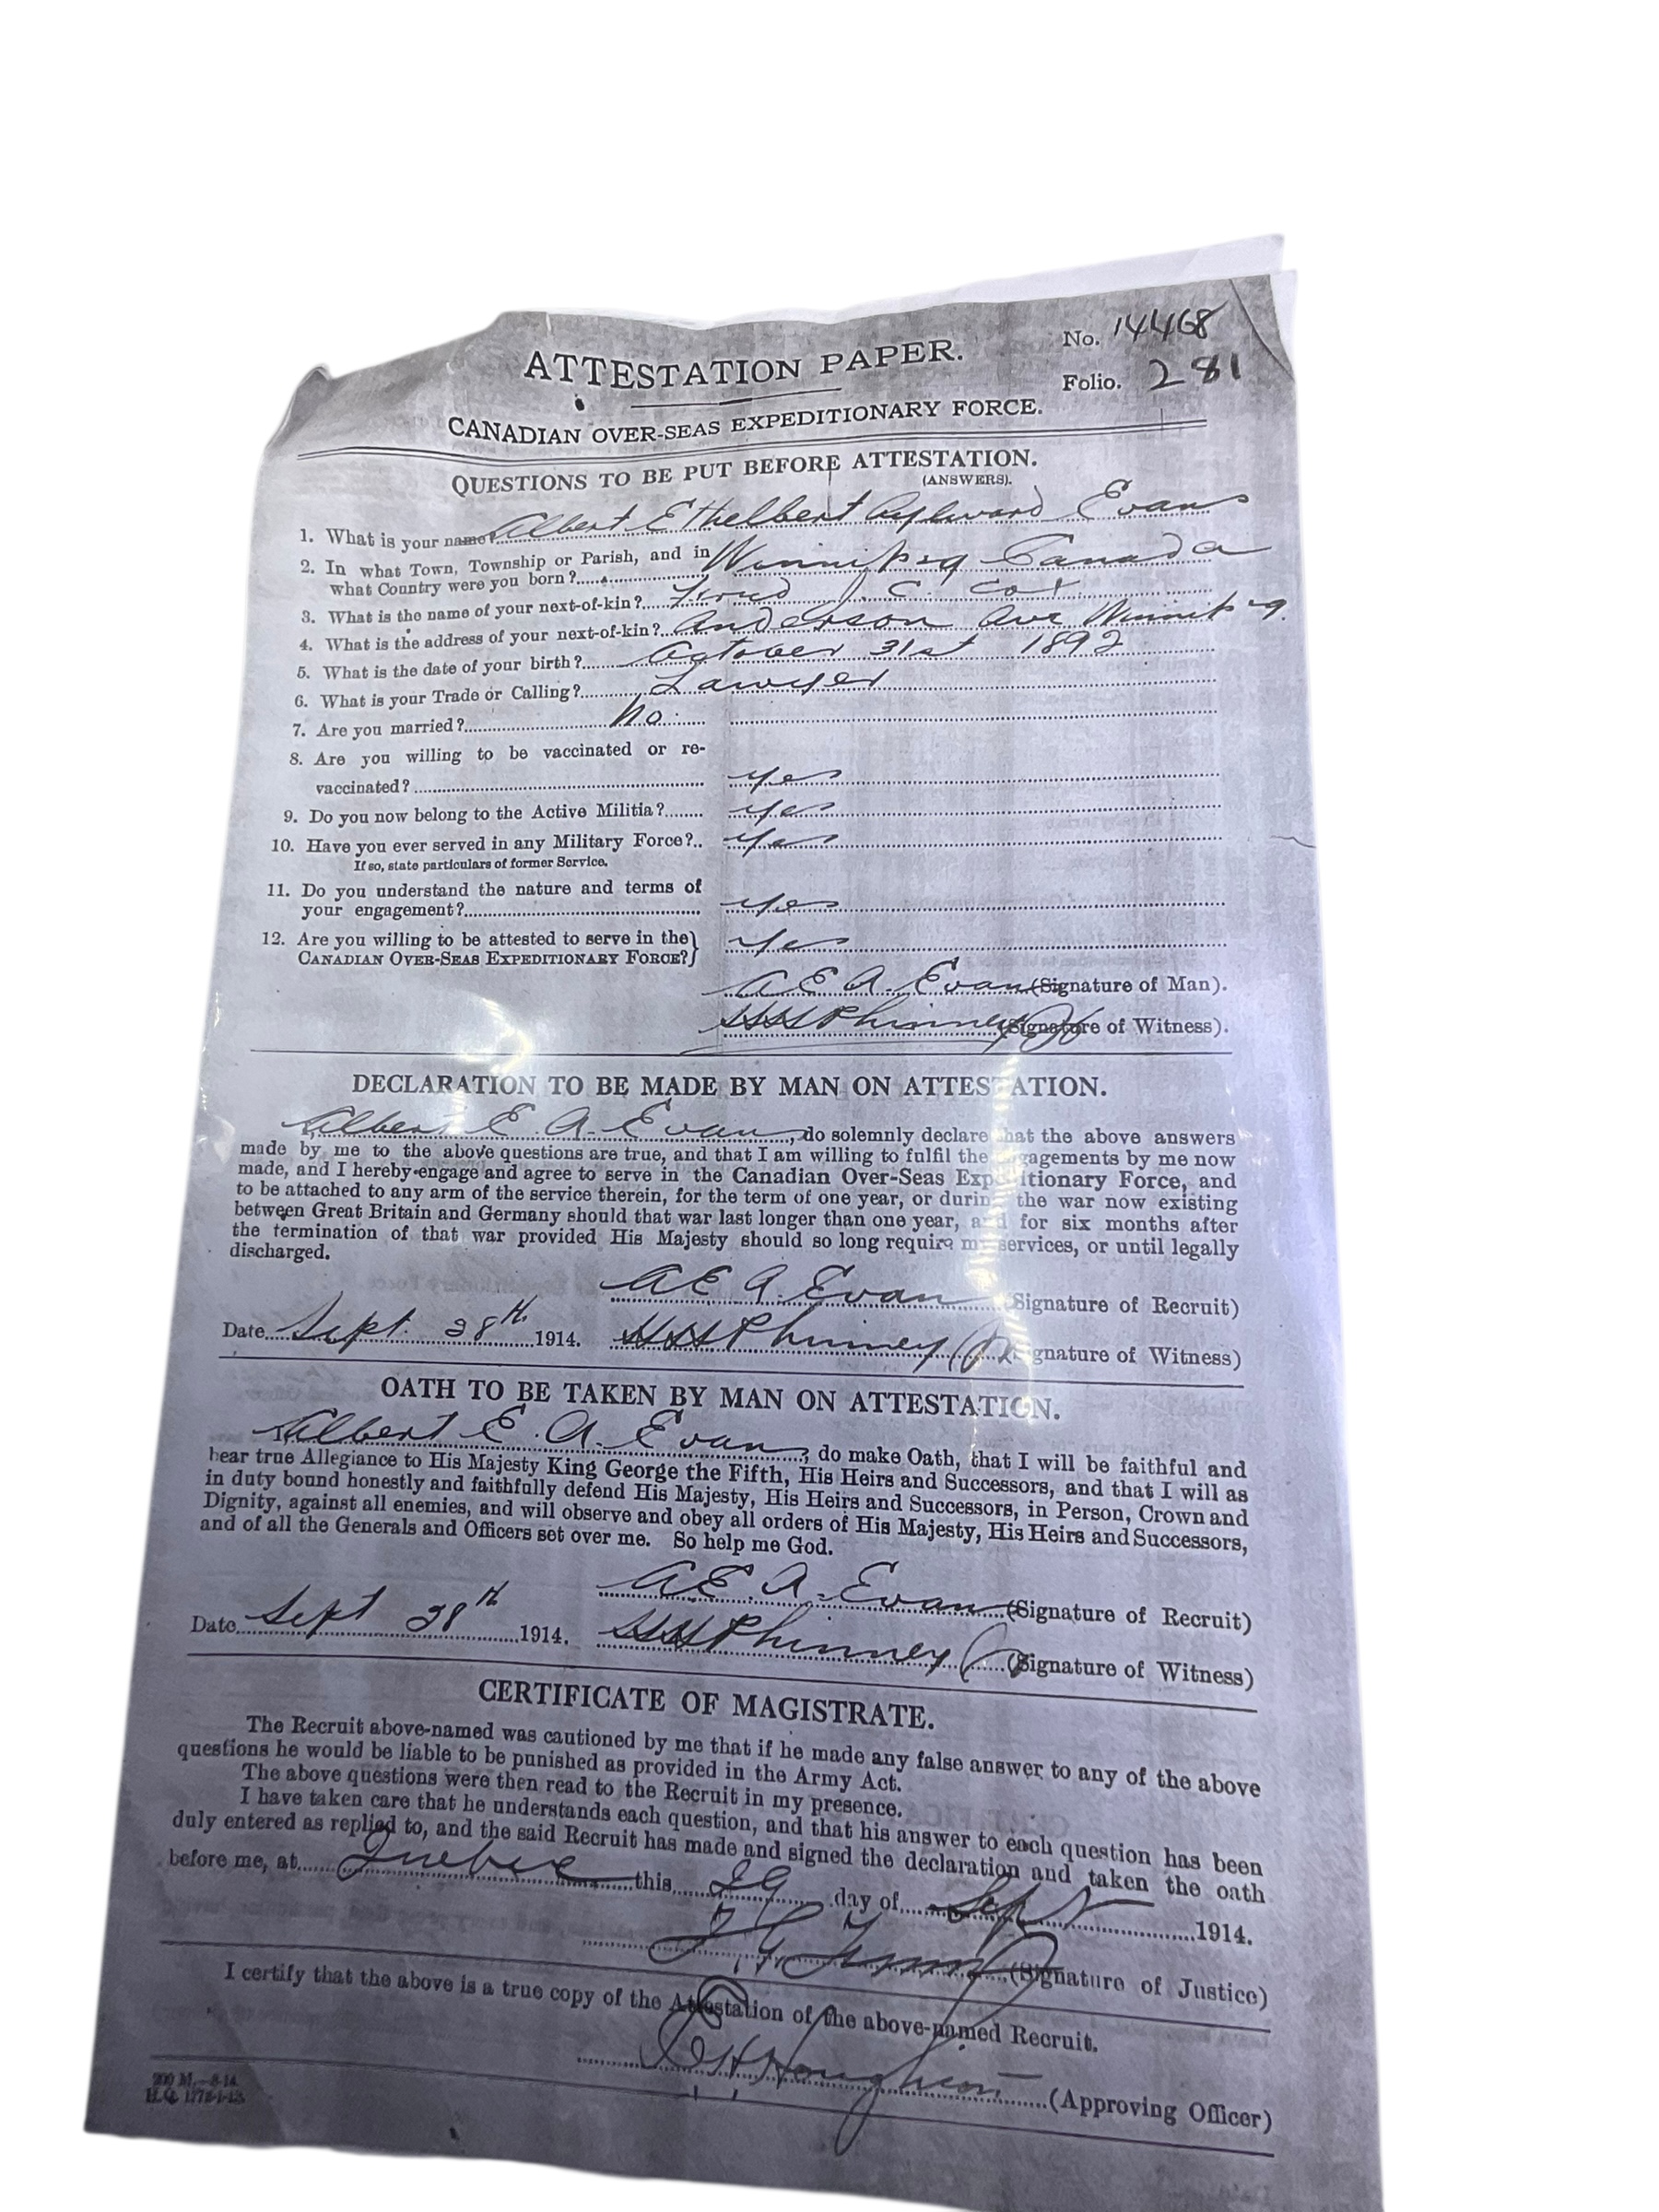 ATTESTATION PAPER.
No. 14468
Folio. 281
CANADIAN OVER-SEAS EXPEDITIONARY FORCE.
QUESTIONS TO BE PUT BEFORE ATTESTATION.
(ANSWERS).
1. What is your name? Albert Ethelbert Aylward Evans
2. In what Town, Township or Parish, and in
what Country were you born? Winnipeg Canada
3. What is the name of your next-of-kin? J. C. Cox
4. What is the address of your next-of-kin? Anderson Ave Winnipeg.
5. What is the date of your birth? October 31st 1892
6. What is your Trade or Calling? Lawyer
7. Are you married? No.
8. Are you willing to be vaccinated or re-
vaccinated? yes
9. Do you now belong to the Active Militia? yes
10. Have you ever served in any Military Force? yes
If so, state particulars of former Service.
11. Do you understand the nature and terms of
your engagement? yes
12. Are you willing to be attested to serve in the
CANADIAN OVER-SEAS EXPEDITIONARY FORCE? yes
A E A. Evans (Signature of Man).
Phinney (Signature of Witness).
DECLARATION TO BE MADE BY MAN ON ATTESTATION.
I, Albert E. A. Evans, do solemnly declare that the above answers
made by me to the above questions are true, and that I am willing to fulfil the engagements by me now
made, and I hereby engage and agree to serve in the Canadian Over-Seas Expeditionary Force, and
to be attached to any arm of the service therein, for the term of one year, or during the war now existing
between Great Britain and Germany should that war last longer than one year, and for six months after
the termination of that war provided His Majesty should so long require my services, or until legally
discharged.
A E A. Evans (Signature of Recruit)
Date Sept. 28th 1914. Phinney (Signature of Witness)
OATH TO BE TAKEN BY MAN ON ATTESTATION.
I, Albert E. A. Evans, do make Oath, that I will be faithful and
bear true Allegiance to His Majesty King George the Fifth, His Heirs and Successors, and that I will as
in duty bound honestly and faithfully defend His Majesty, His Heirs and Successors, in Person, Crown and
Dignity, against all enemies, and will observe and obey all orders of His Majesty, His Heirs and Successors,
and of all the Generals and Officers set over me. So help me God.
A E A. Evans (Signature of Recruit)
Date Sept 28th 1914. Phinney (Signature of Witness)
CERTIFICATE OF MAGISTRATE.
The Recruit above-named was cautioned by me that if he made any false answer to any of the above
questions he would be liable to be punished as provided in the Army Act.
The above questions were then read to the Recruit in my presence.
I have taken care that he understands each question, and that his answer to each question has been
duly entered as replied to, and the said Recruit has made and signed the declaration and taken the oath
before me, at Quebec this 29 day of Sept 1914.
(Signature of Justice)
I certify that the above is a true copy of the Attestation of the above-named Recruit.
(Approving Officer)
200 M.—8-14.